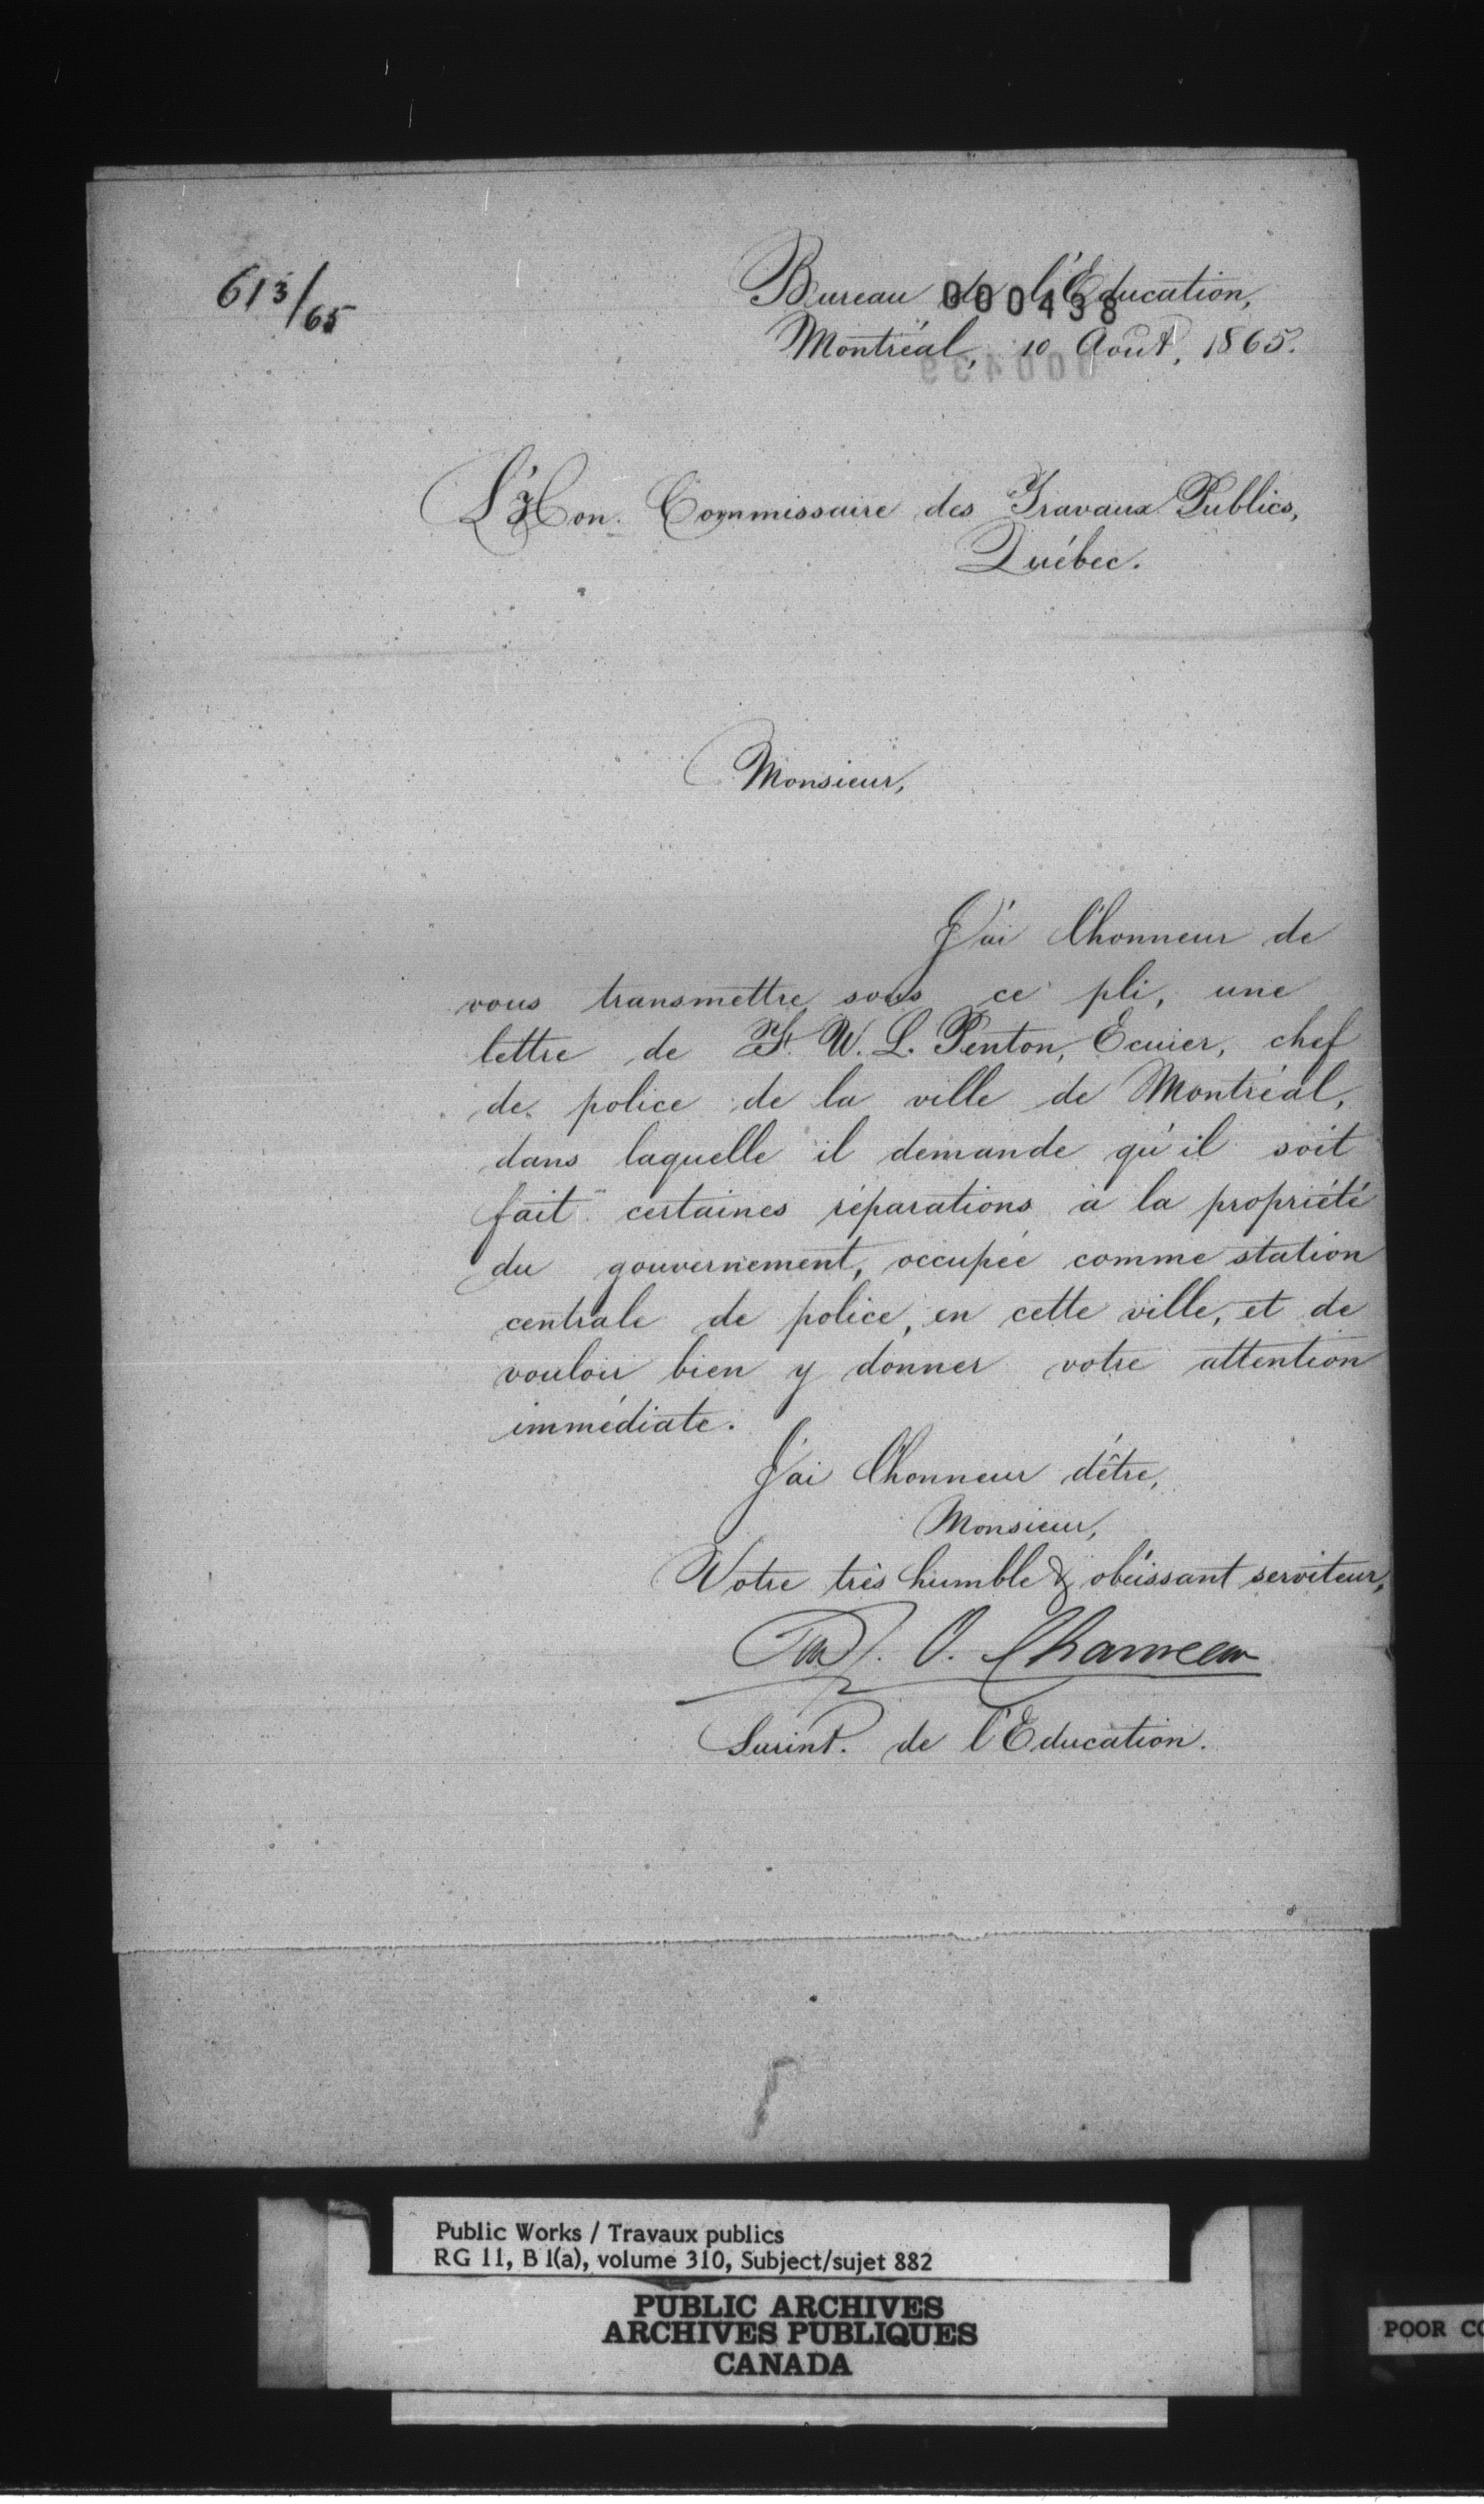 613/65
Bureau de l'Éducation,
000438
Montréal, 10 Août, 1865.
000439
L'Hon. Commissaire des Travaux Publics,
Québec.
Monsieur,
J'ai l'honneur de
vous transmettre sous ce pli, une
lettre de F. W. L. Penton, Ecuier, chef
de police de la ville de Montréal,
dans laquelle il demande qu'il soit
fait certaines réparations à la propriété
du gouvernement, occupée comme station
centrale de police, en cette ville, et de
vouloir bien y donner votre attention
immédiate.
J'ai l'honneur d'être,
Monsieur,
Votre très humble & obéissant serviteur,
O. Chauveau
Surint. de l'Education.
Public Works / Travaux publics
RG 11, B 1(a), volume 310, Subject/sujet 882
PUBLIC ARCHIVES
ARCHIVES PUBLIQUES
CANADA
POOR CO